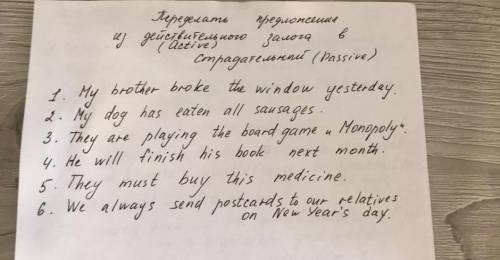 Переделать предложение
из действительного залога в
(Active)
страдательный (Passive)
1. My brother broke the window yesterday.
2. My dog has eaten all sausages.
3. They are playing the board game „Monopoly“.
4. He will finish his book next month.
5. They must buy this medicine.
6. We always send postcards to our relatives
on New Year's day.